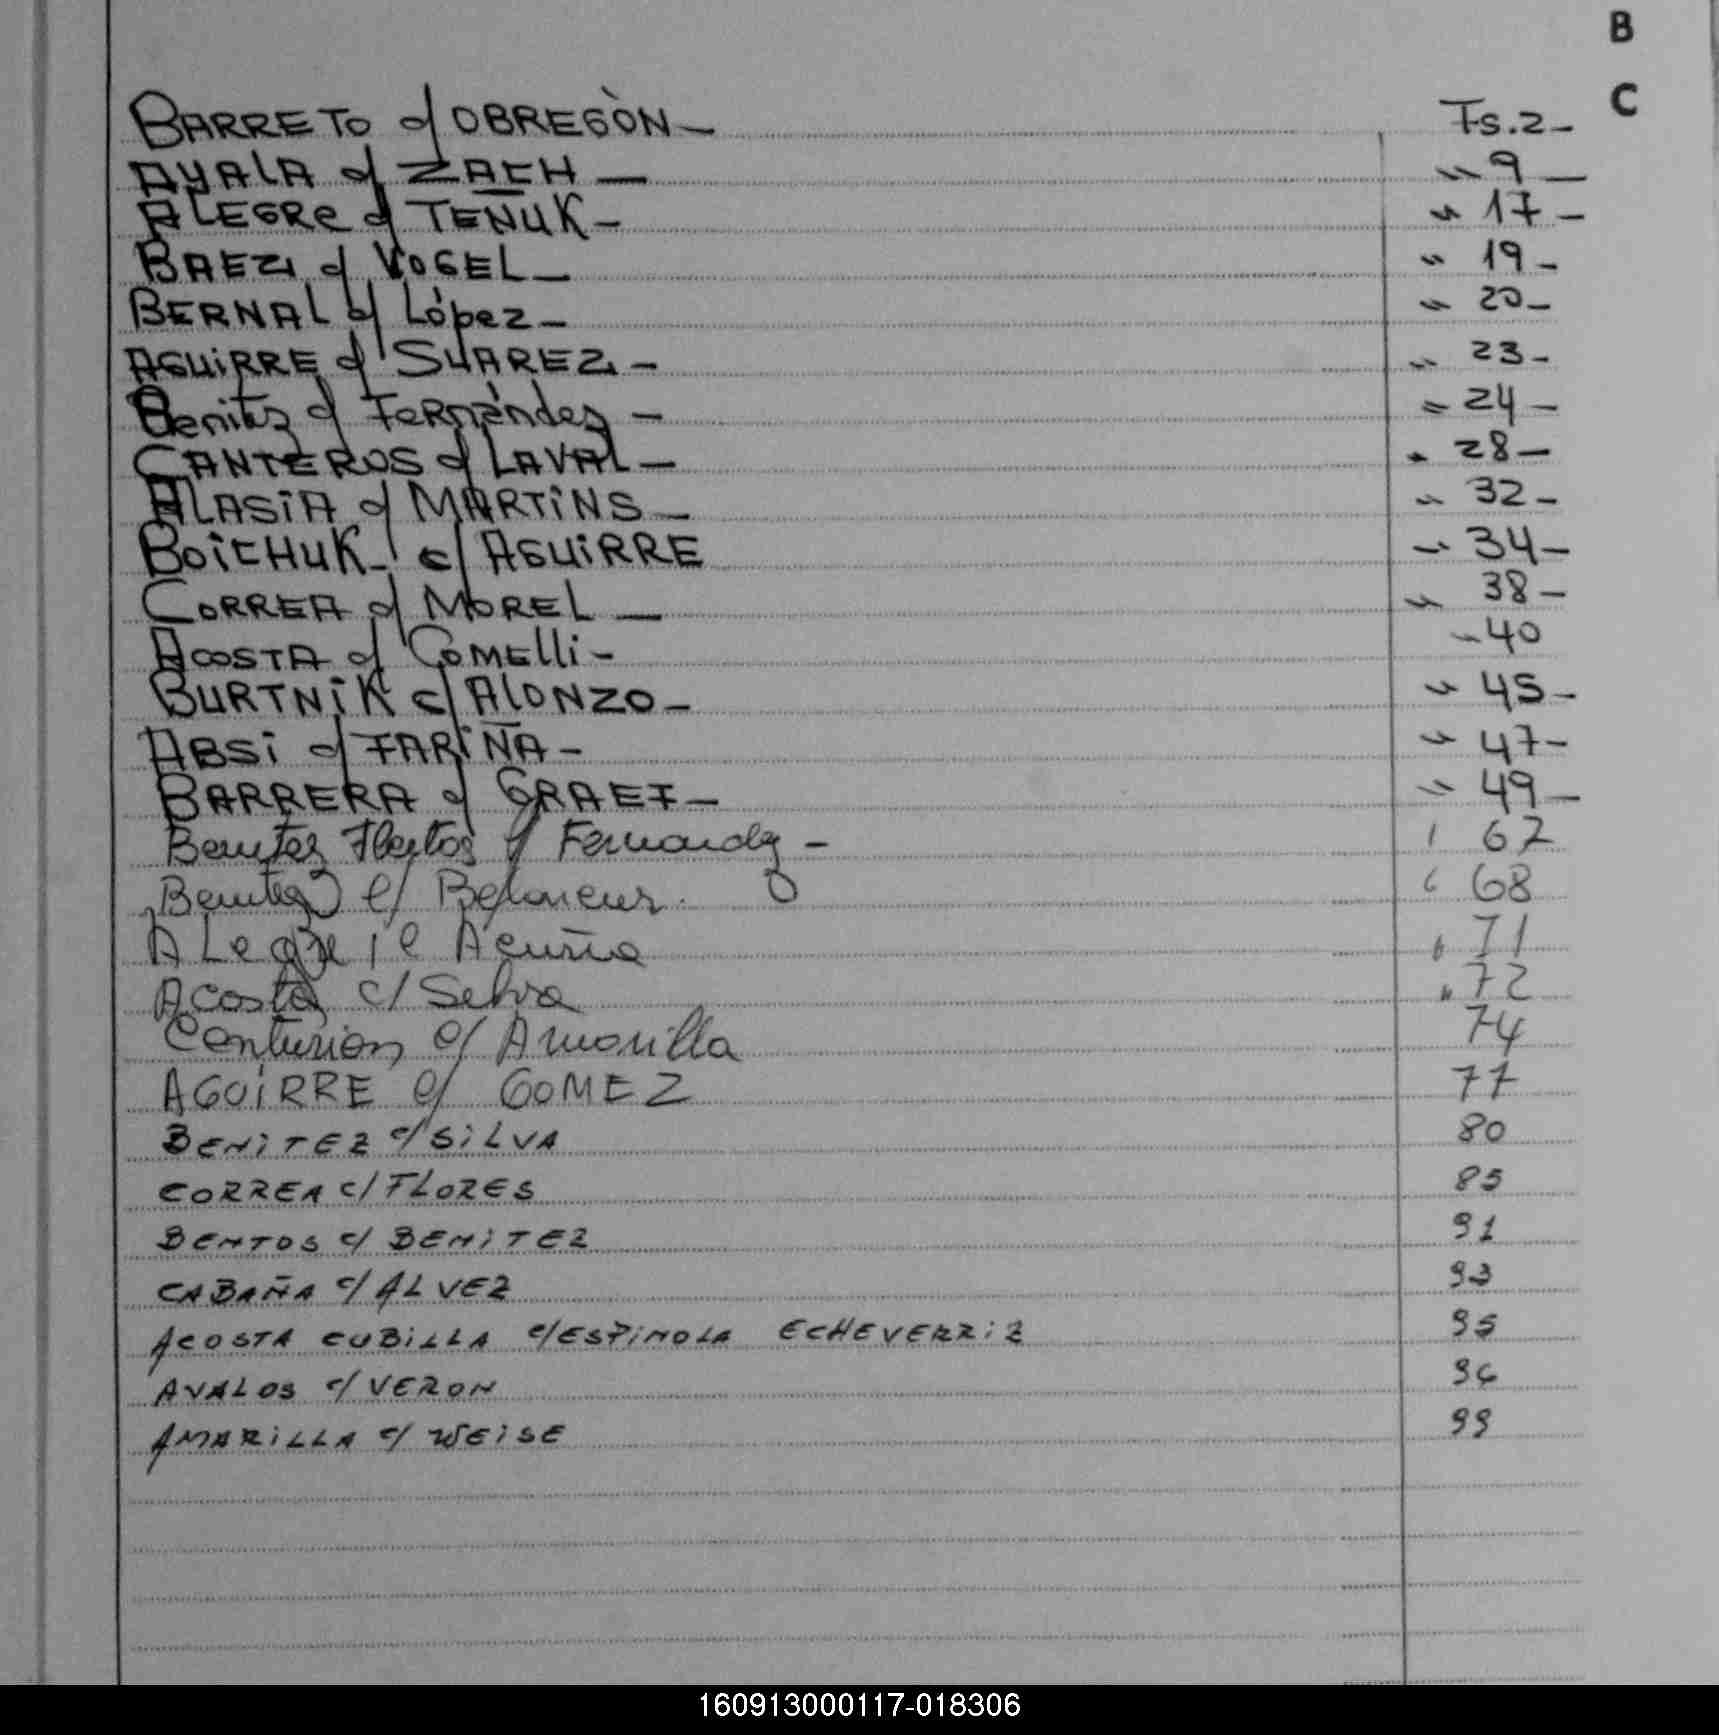 B
C
BARRETO c/ OBREGÒN — Fs. 2 –
AYALA c/ ZACH — " 9 —
ALEGRe c/ TEÑUK – " 17 –
BAEZ c/ VOGEL — " 19 –
BERNAL c/ López – " 20 –
AGUiRRE c/ SUAREZ – " 23 –
Benitez c/ Fernández – " 24 –
CANTEROS c/ LAVAL – " 28 –
ALASiA c/ MARTiNS – " 32 –
BOiCHUK – c/ AGUiRRE " 34 –
CORREA c/ MOREL — " 38 –
ACOSTA c/ COMElli – " 40
BURTNiK c/ AlONZO – " 45 –
ABSi c/ FARiÑA – " 47 –
BARRERA c/ GRAEF – " 49 —
Benitez Fleitas c/ Fernandez – 67
Benitez c/ 68
ALegre c Acuña " 71
Acosta c/ Selva " 72
Centurion c/ Amarilla 74
AGUiRRE c/ GOMEZ 77
BENiTEZ c/ SiLVA 80
CORREA c/ FLORES 85
BENTOS c/ BENiTEZ 91
CABAÑA c/ ALVEZ 93
ACOSTA CUBiLLA c/ ESPiNOLA ECHEVERRiZ 95
AVALOS c/ VERON 96
AMARiLLA c/ WEiSE 99
160913000117-018306